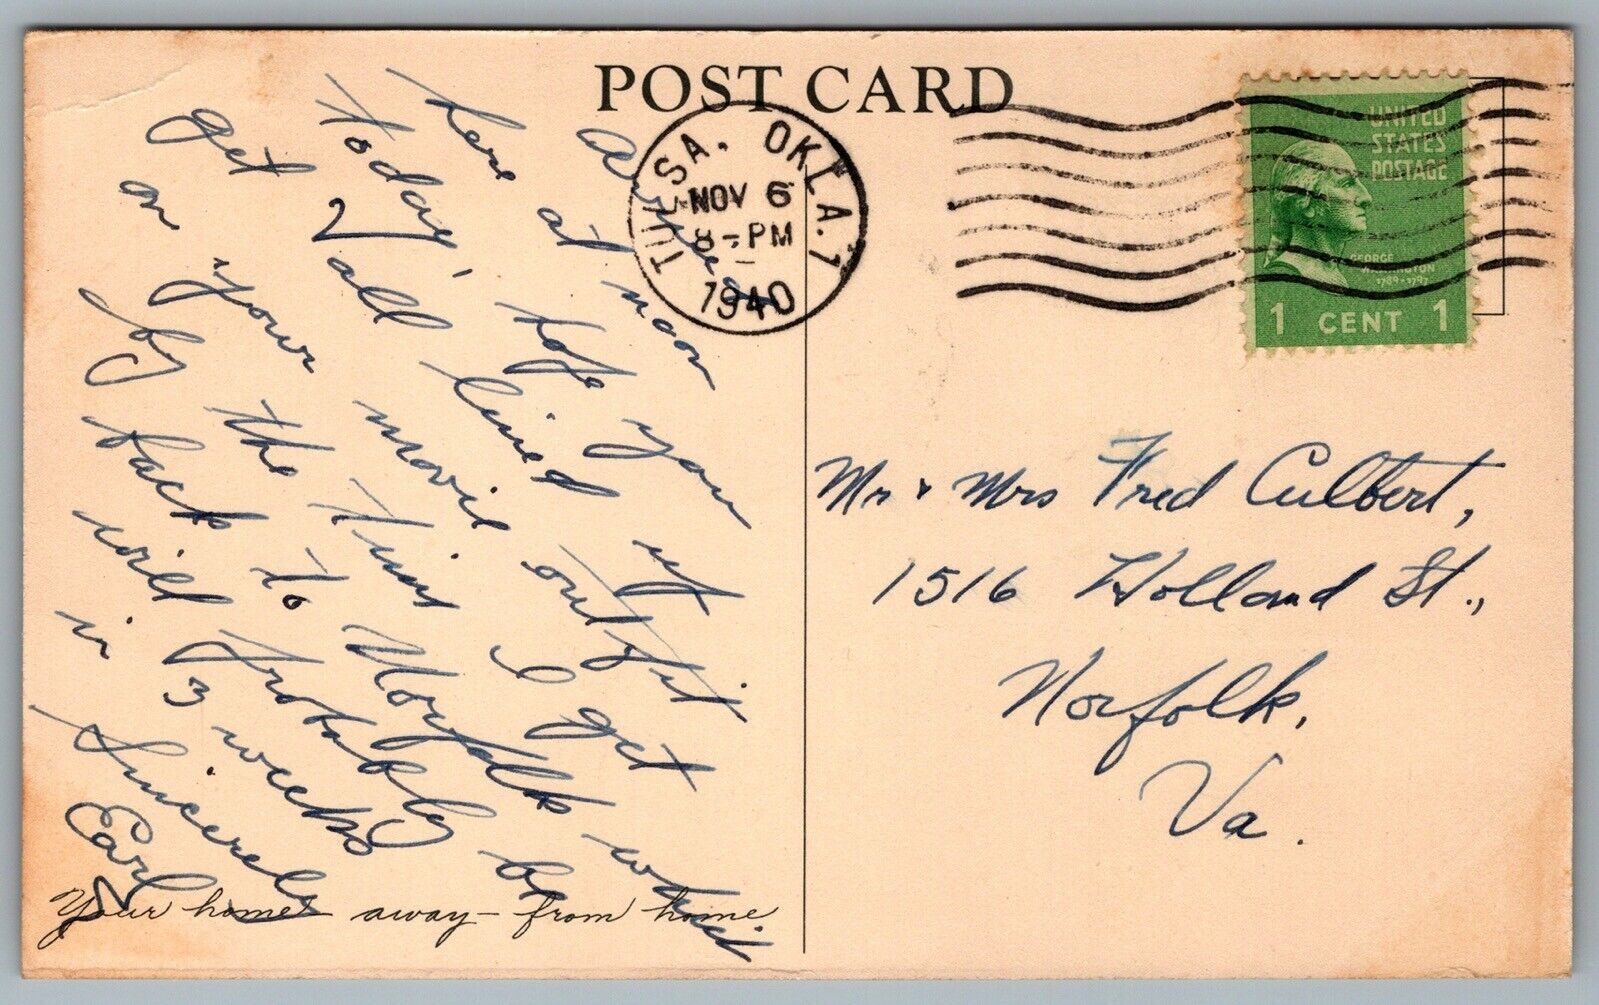 POST CARD
TULSA, OKLA. 1
NOV 6
8-PM
1940
UNITED
STATES
POSTAGE
GEORGE
WASHINGTON
1789-1797
1 CENT 1
Arrived
here at noon
today, hope you
get all lined up
on your movie outfit
by the time I get
back to Norfolk which
will probably be
in 3 weeks
Sincerely
Earl
Your home - away - from home
Mr & Mrs Fred Culbert,
1516 Holland St.,
Norfolk,
Va.